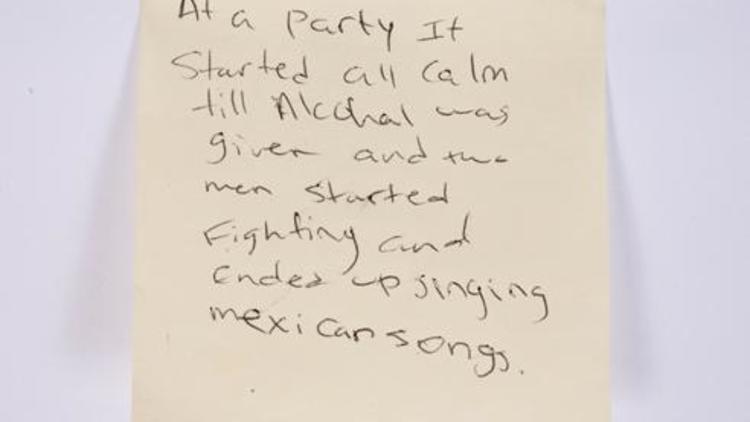 At a party It
Started all calm
till Alcohal was
given and the
men started
Fighting and
ended up singing
mexican songs.